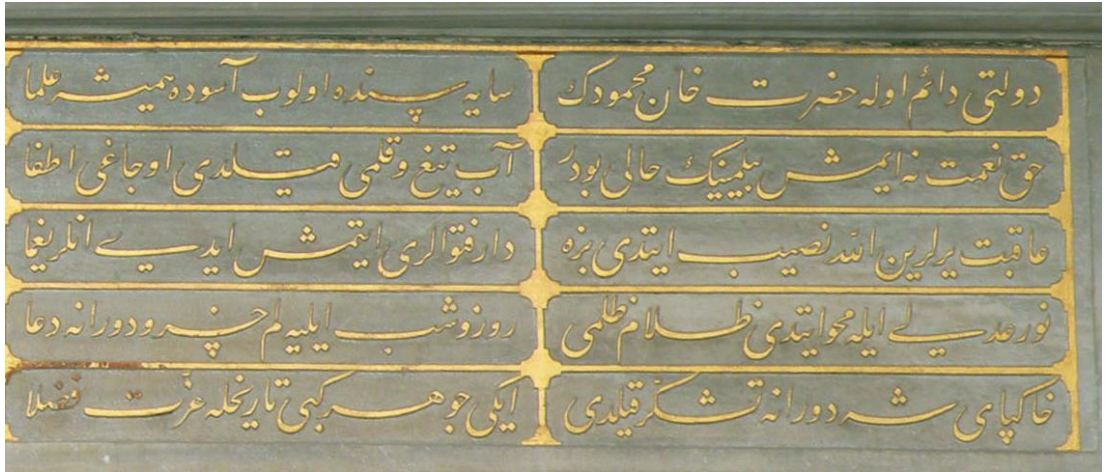 دولتی دائم اوله حضرت خان محمودك سایه سنده اولوب آسوده همیشه علما
حق نعمت نه ایمش بیلمینك حالی بودر آب تیغ و قلمی قیلدی اوجاغی اطفا
عاقبت یرلرین الله نصیب ایتدی بزه دار فتوالری ایتمش ایدی انلر یغما
نور عدلی ایله محو ایتدی ظلام ظلمی روز و شب ایلیه لم خسرو دورانه دعا
خاکپای شه دورانه تشکر قیلدی ایکی جوهر کبی تاریخله عزت فضلا